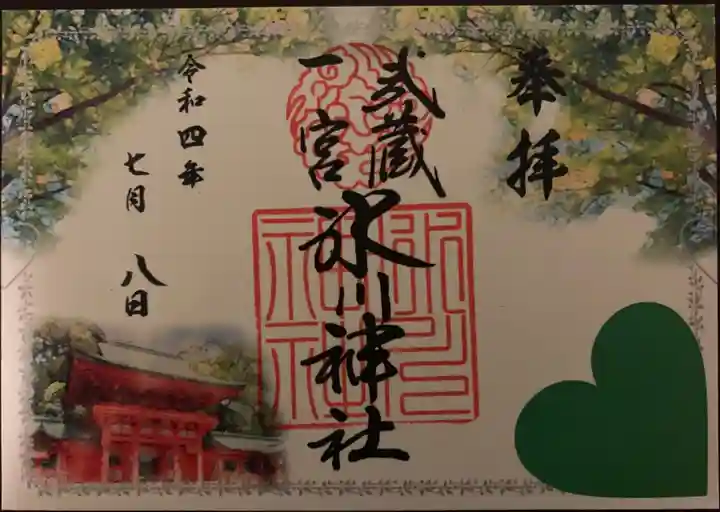 奉拝
武蔵
一宮
氷川神社
氷川
神社
令和四年
七月 八日